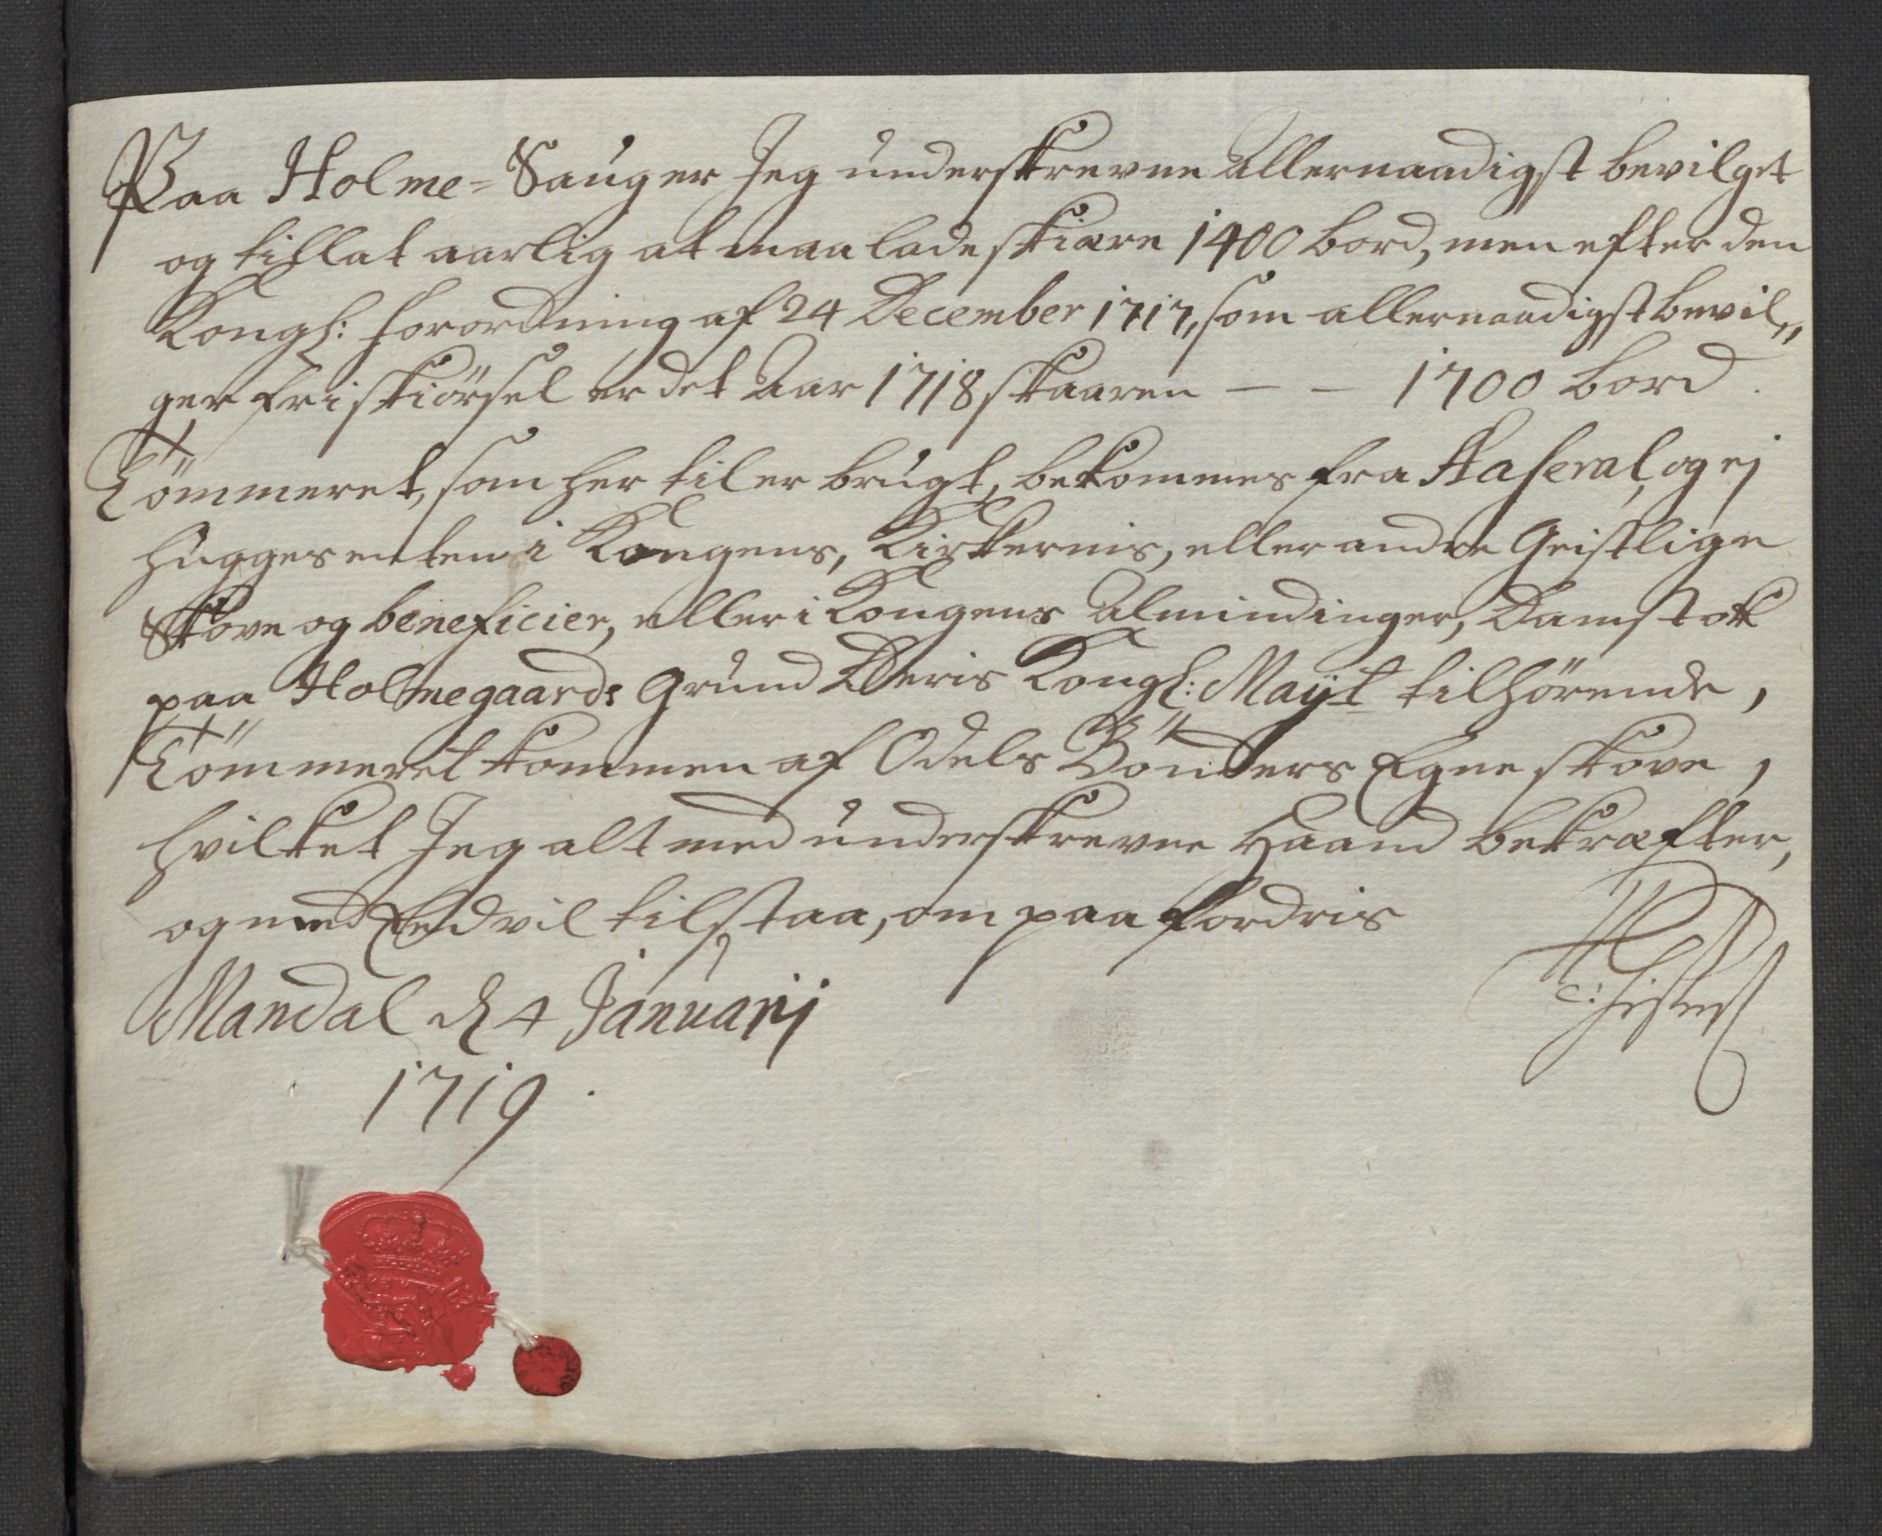 Paa Holme=Sauger Jeg underskrevne Allernaadigst bevilget
og tillat aarlig at maa lade skiære 1400 bord, men efter den
Kongl: forordning af 24 December 1717, som allernaadigst bevil„
ger fri skiörsel er det Aar 1718 skaaren — — 1700 bord.
Tömmeret, som her til er brugt, bekommes fra Aaseral, og ej
hugges enten i Kongens, Kirkernis, eller andre Geistlige
Skove og beneficier, eller i Kongens Almindinger, Damstok
paa Holmegaards Grund Deris Kongl: Mayt tilhörende,
Tömmeret kommen af Odels Bönders Egne skove,
hvilket Jeg alt med underskrevne Haand bekræfter,
og med Eed vil tilstaa, om paa fordris
Mandal d 4 Januarij
1719.